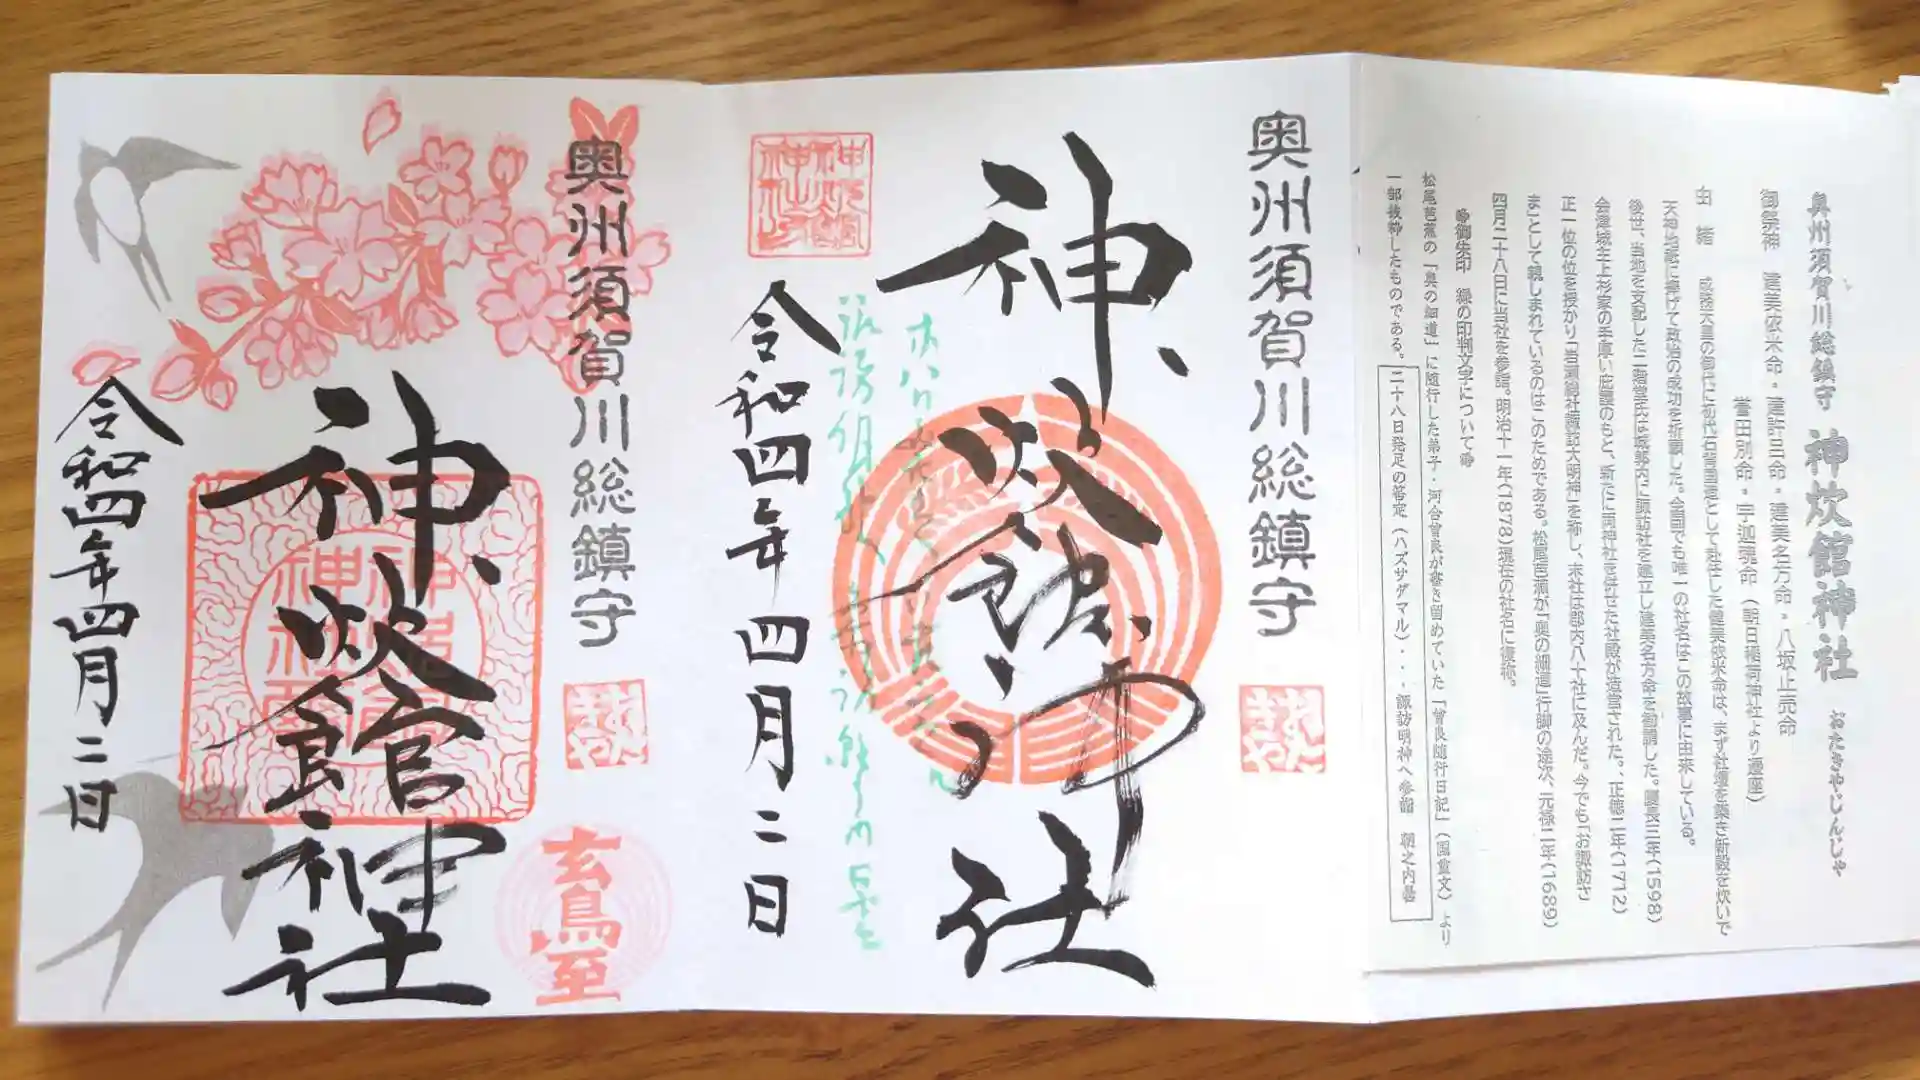 奥州須賀川総鎮守 神炊館神社 おたきやじんじゃ
御祭神 建美依米命・建許呂命・建美名方命・八坂止売命
誉田別命・宇迦魂命(朝日稲荷神社より遷座)
由緒 成務天皇の御代に初代石背国造として赴任した建美依米命は、まず社壇を築き新穀を炊いで
天神地祇に捧げて政治の成功を祈願した。全国でも唯一の社名はこの故事に由来している。
後世、当地を支配した二階堂氏は城郭内に諏訪社を建立し建美名方命を勧請した。慶長三年(1598)
会津城主上杉家の手厚い庇護のもと、新たに両神社を併せた社殿が造営された。正徳二年(1712)
正一位の位を授かり「岩瀬総社諏訪大明神」を称し、末社は郡内八十社に及んだ。今でも「お諏訪さ
ま」として親しまれているのはこのためである。松尾芭蕉が「奥の細道」行脚の途次、元禄二年(1689)
四月二十八日に当社を参詣。明治十一年(1878)現在の社名に復称。
御朱印 緑の印判文字について
松尾芭蕉の「奥の細道」に随行した弟子・河合曾良が書き留めていた「曾良随行日記」(国重文)より
一部抜粋したものである。
二十八日発足の筈定(ハズサダマル)・・・諏訪明神へ参詣 朝之内曇
奥州須賀川総鎮守
神炊館神社
神炊館神社
令和四年四月二日
奥州須賀川総鎮守
神炊館神社
玄鳥至
令和四年四月二日